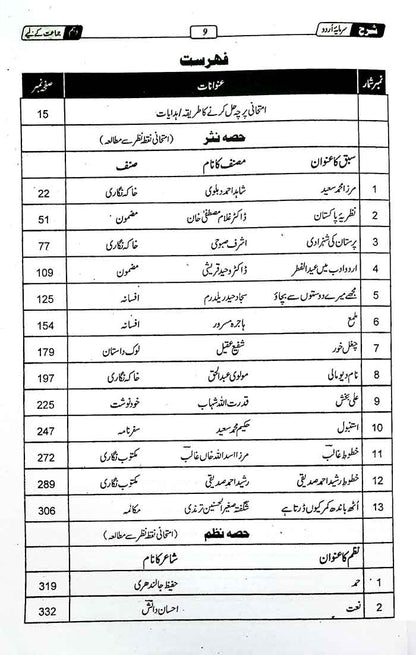 شرح سرمایۂ اُردو 9 دہم جماعت کے لیے
فہرست
نمبر شمار عنوانات صفحہ نمبر
امتحانی پرچہ حل کرنے کا طریقہ/ہدایات 15
حصہ نثر (امتحانی نقطۂ نظر سے مطالعہ)
سبق کا عنوان مصنف کا نام صنف
1 مرزا محمد سعید شاہد احمد دہلوی خاکہ نگاری 22
2 نظریۂ پاکستان ڈاکٹر غلام مصطفیٰ خان مضمون 51
3 پرستان کی شہزادی اشرف صبوحی خاکہ نگاری 77
4 اردو ادب میں عید الفطر ڈاکٹر وحید قریشی مضمون 109
5 مجھے میرے دوستوں سے بچاؤ سجاد حیدر یلدرم افسانہ 125
6 ملمع ہاجرہ مسرور افسانہ 154
7 چغل خور شفیع عقیل لوک داستان 179
8 نام دیو مالی مولوی عبدالحق خاکہ نگاری 197
9 علی بخش قدرت اللہ شہاب خودنوشت 225
10 استنبول حکیم محمد سعید سفرنامہ 247
11 خطوطِ غالبؔ مرزا اسد اللہ خاں غالبؔ مکتوب نگاری 272
12 خطوطِ رشید احمد صدیقی رشید احمد صدیقی مکتوب نگاری 289
13 اُٹھ باندھ کمر کیوں ڈرتا ہے شگفتہ صغیر الحسنین ترمذی مکالمہ 306
حصہ نظم (امتحانی نقطۂ نظر سے مطالعہ)
نظم کا عنوان شاعر کا نام
1 حمد حفیظ جالندھری 319
2 نعت احسان دانشؔ 332